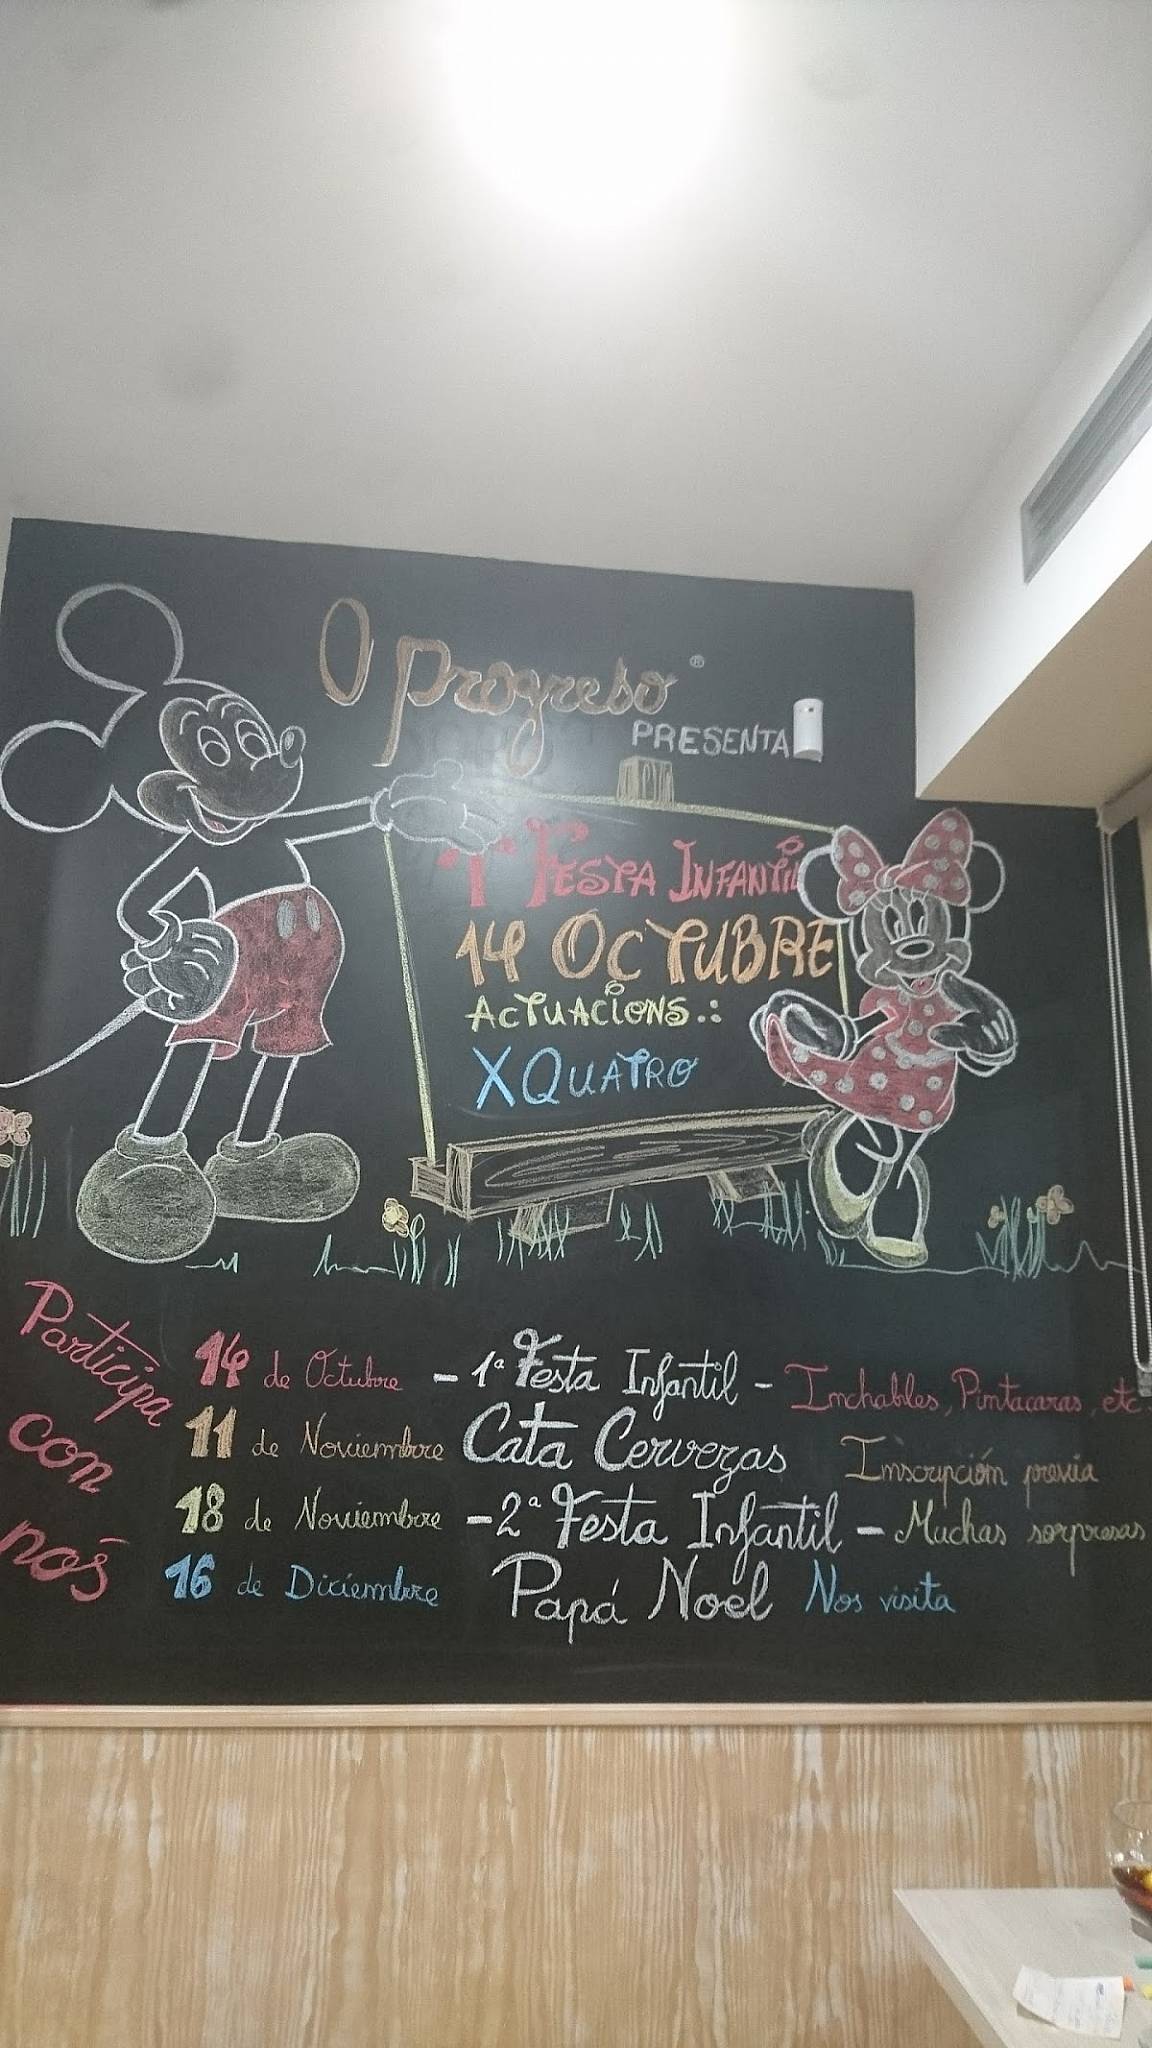 O Progreso®
PRESENTA
1ª FESTA INFANTIL
14 OCTUBRE
ACTUACIONS.:
XQUATRO
Participa
con
nós
14 de Octubre - 1ª Festa Infantil - Inchables, Pintacaras, etc.
11 de Noviembre Cata Cervezas Inscripción previa
18 de Noviembre - 2ª Festa Infantil - Muchas sorpresas
16 de Diciembre Papá Noel Nos visita